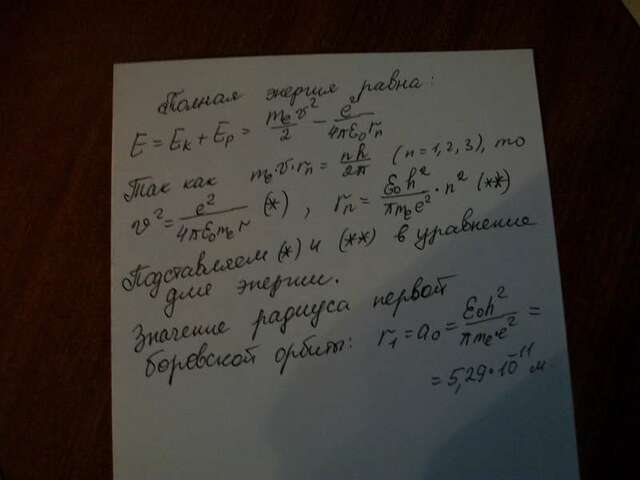 Полная энергия равна:
E = Eк + Eр = mₑv²/2 − e²/4πε₀rₙ
Так как mₑ·v·rₙ = nh/2π (n=1,2,3), то
v² = e²/4πε₀mₑr (*), rₙ = ε₀h²/πmₑe² · n² (**)
Подставляем (*) и (**) в уравнение
для энергии.
Значение радиуса первой
боровской орбиты: r₁ = a₀ = ε₀h²/πmₑ·e² =
= 5,29·10⁻¹¹ м